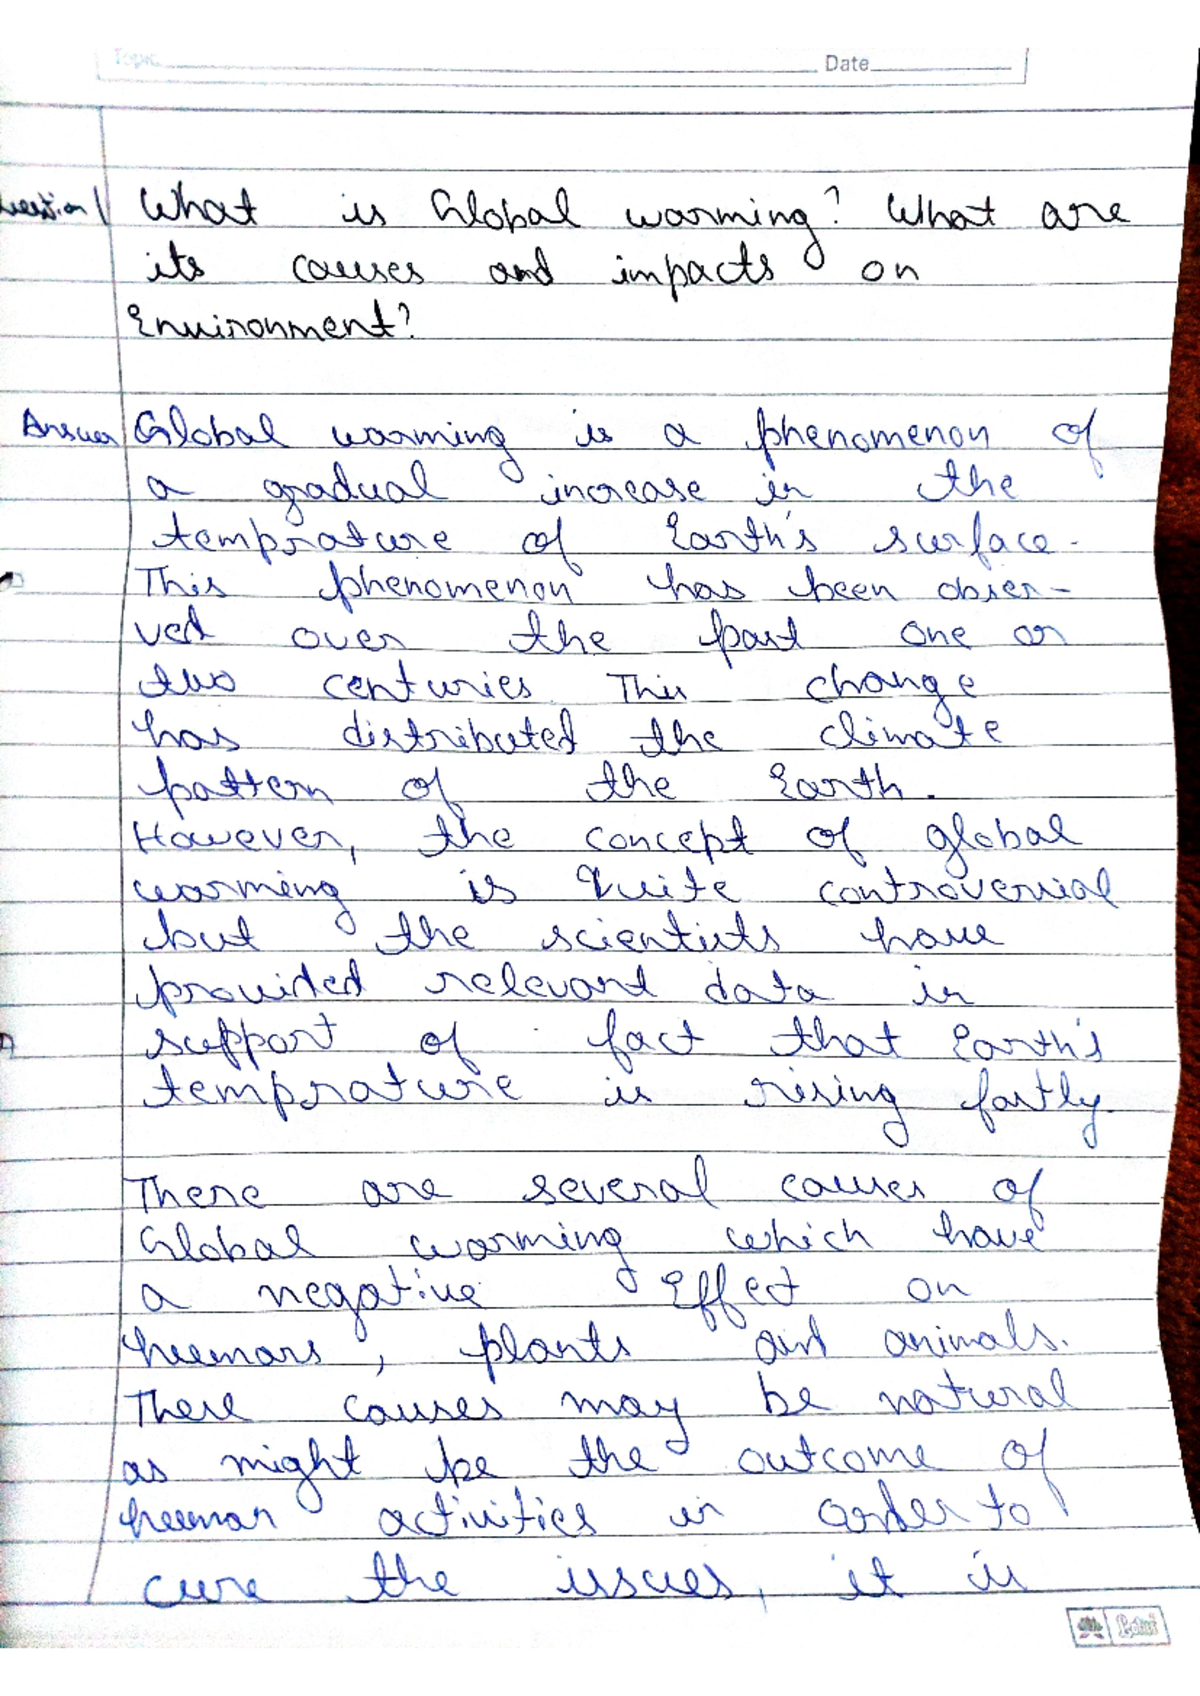 Topic Date
Question 1 What is Global warming? What are
its causes and impacts on
Environment?
Answer Global warming is a phenomenon of
a gradual increase in the
temprature of Earth's surface.
This phenomenon has been obser-
ved over the past one or
two centuries. This change
has distributed the climate
pattern of the Earth.
However, the concept of global
warming is quite controversial
but the scientists have
provided relevant data in
support of fact that Earth's
temprature is rising fastly.
There are several causes of
Global warming which have
a negative Effect on
humans, plants and animals.
These causes may be natural
as might be the outcome of
human activities in order to
cure the issues, it is
Lotus